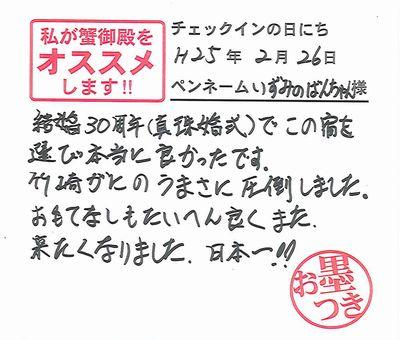 私が蟹御殿を
オススメ
します!!
チェックインの日にち
H25年 2月 26日
ペンネームいずみのばんちゃん様
結婚30周年(真珠婚式)でこの宿を
選び本当に良かったです。
竹崎がにのうまさに圧倒しました。
おもてなしもたいへん良くまた、
来たくなりました、日本一!!
お墨つき